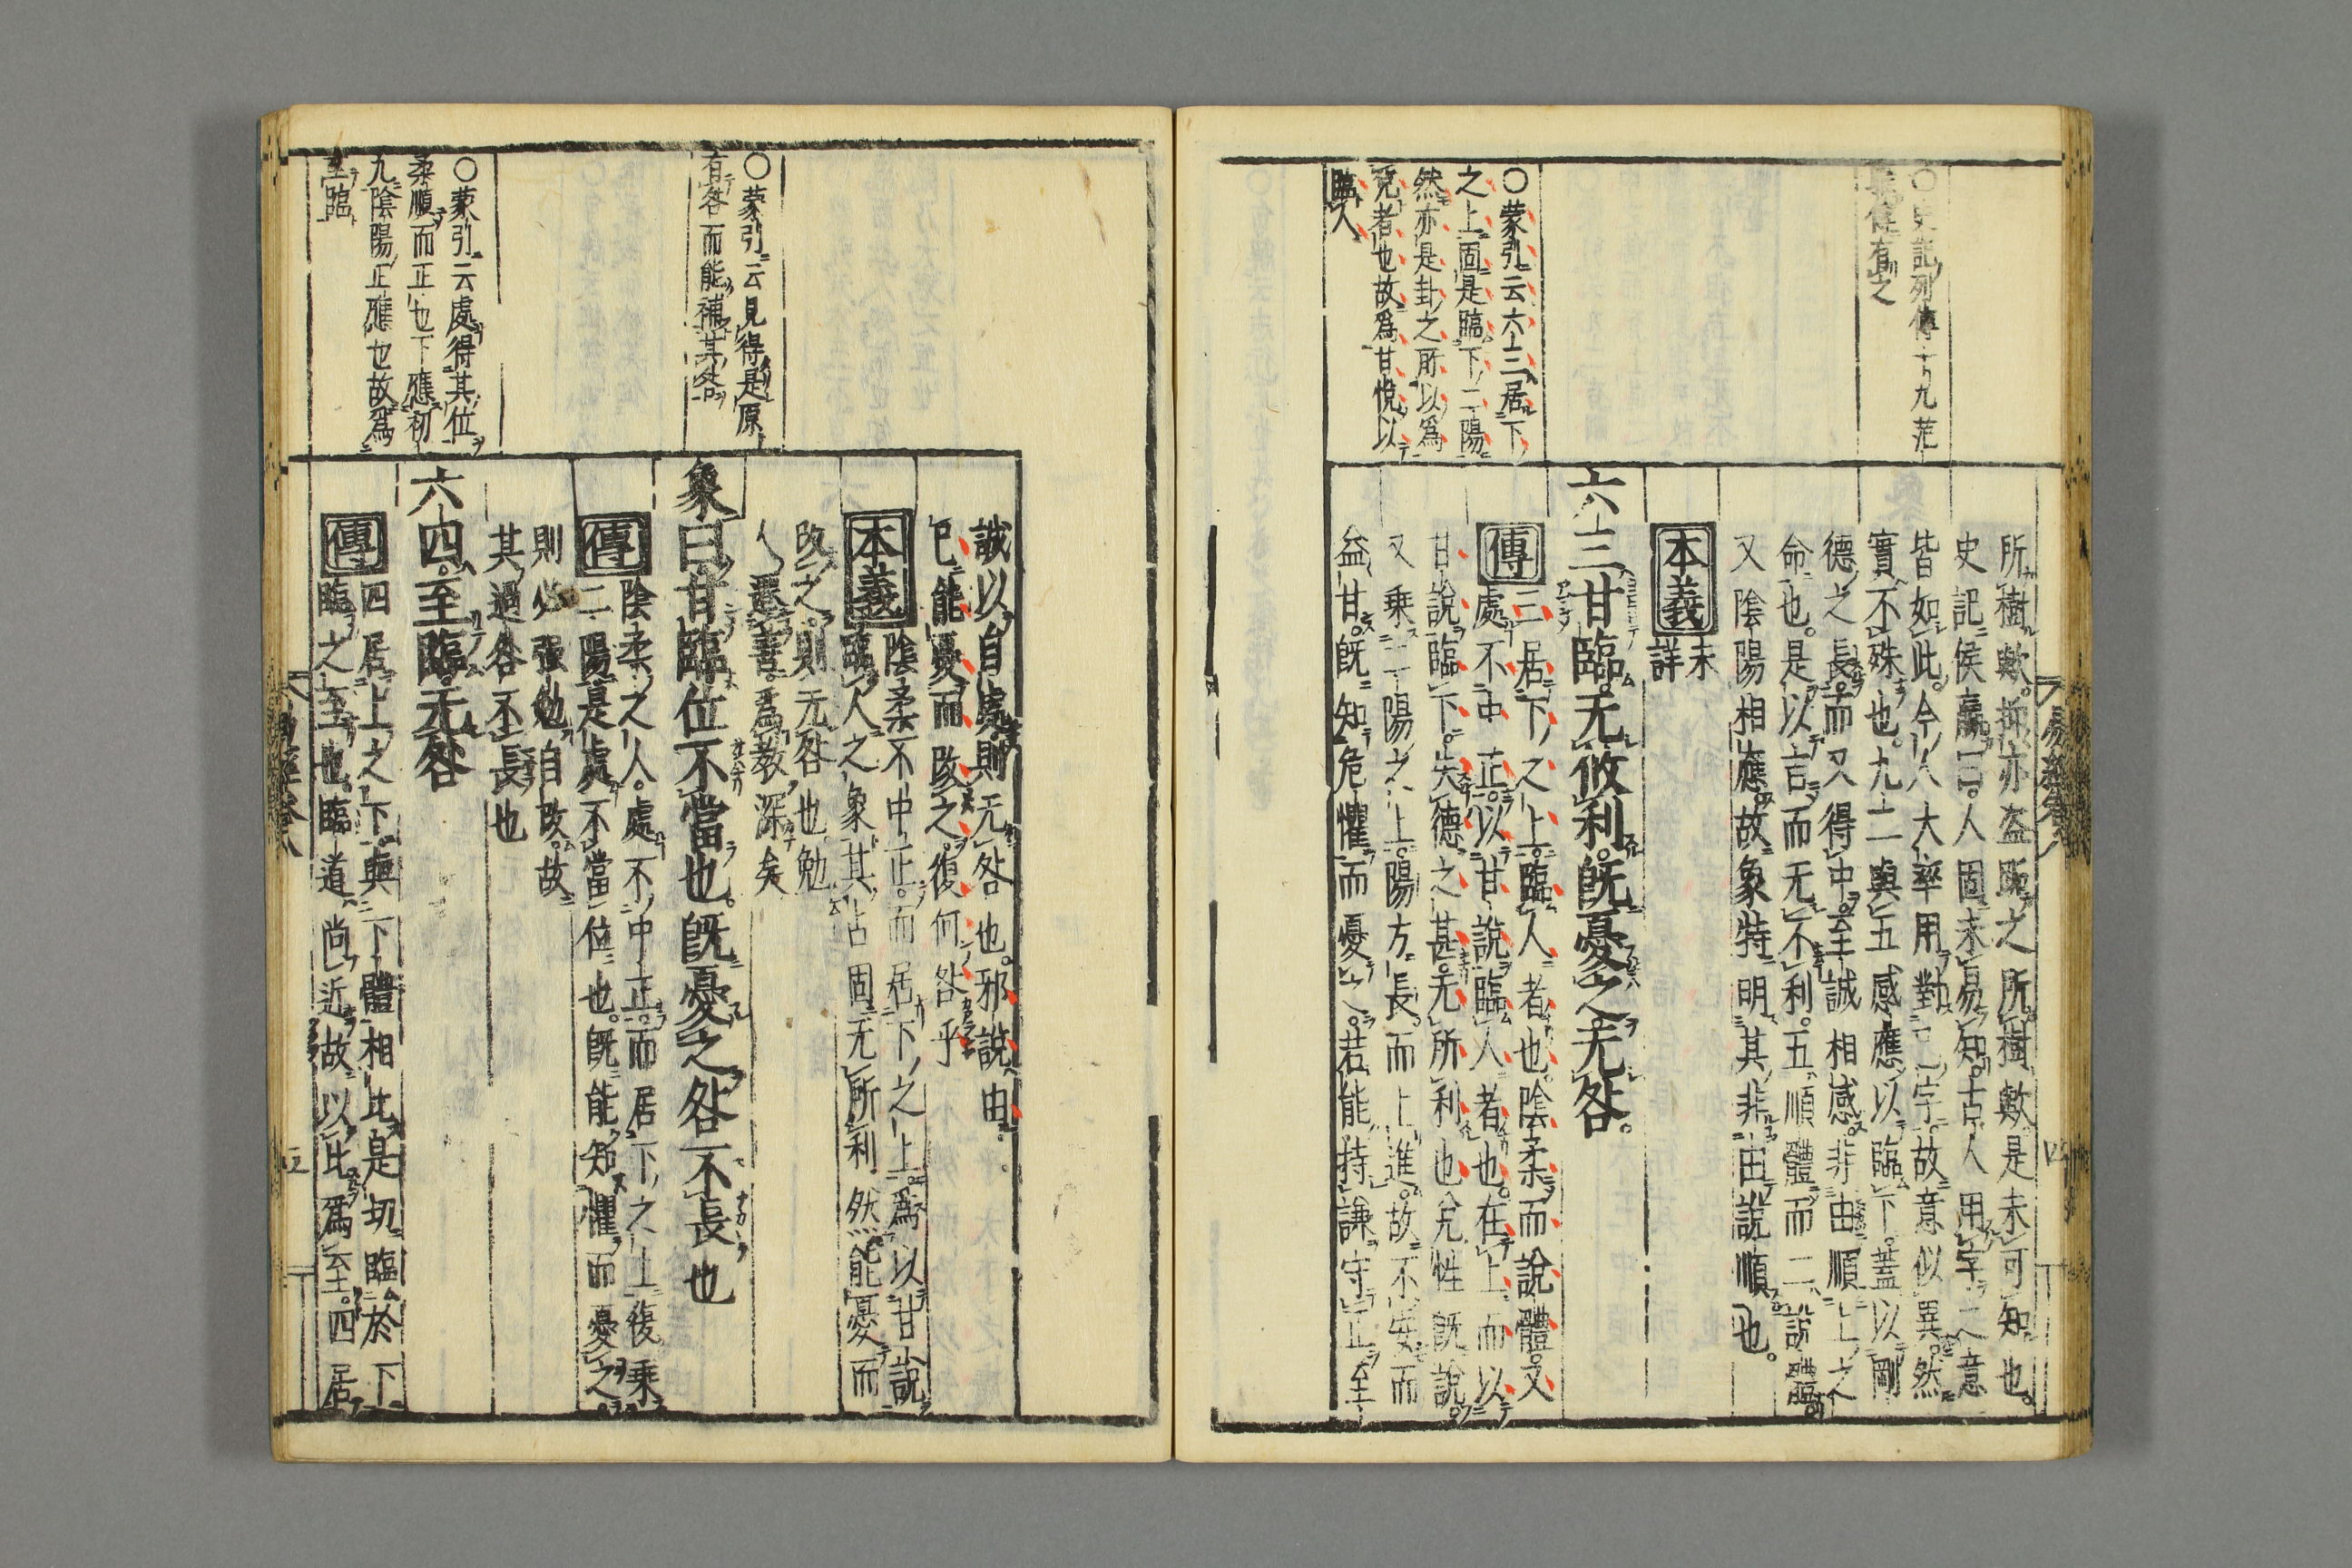 〇史記列傳十九茫
〇蒙引云六三居下
之上固是臨下二陽
然亦是卦之所以爲
兌者也故爲甘悅以
臨人
所樹歟抑亦盗跖之所樹歟是未可知也。
史記侯嬴曰。人固未易知。古人用字之意
皆如此。今人大率用對已字。故意似異。然
實不殊也。九二與五感應以臨下。蓋以剛
德之長。而又得中。至誠相感。非由順上之
命也。是以言而无不利。五順體而二說體
又陰陽相應。故象特明其非由說順也。
本義未詳
六三甘臨。无攸利。旣憂之。无咎。
傳三居下之上。臨人者也。陰柔而說體。又
處不中正。以甘說臨人者也。在上而以
甘說臨下。失德之甚。无所利也兌性旣說。
又乘二陽之上。陽方長而上進。故不安而
益甘。旣知危懼而憂之。若能持謙守正至
〇蒙引云見得是原
有咎而能補其咎
〇蒙引云處得其位
柔順而正也下應初
九陰陽正應也故爲
至臨
誠以自處則无咎也。邪說由
已能憂而改之。復何咎乎
本義陰柔不中正。而居下之上。爲以甘說
臨人之象其占固无所利然能憂而
改之。則无咎也勉
人遷善。爲教深矣
象曰甘臨位不當也。旣憂之咎不長也
傳陰柔之人。處不中正。而居下之上復乘
二陽是處不當位也。旣能知懼而憂之。
則必强勉自改。故
其過咎不長也
六四。至臨。无咎
傳四居上之下。與下體相比是切臨於下
臨之至也臨道尚近。故以比爲至。四居